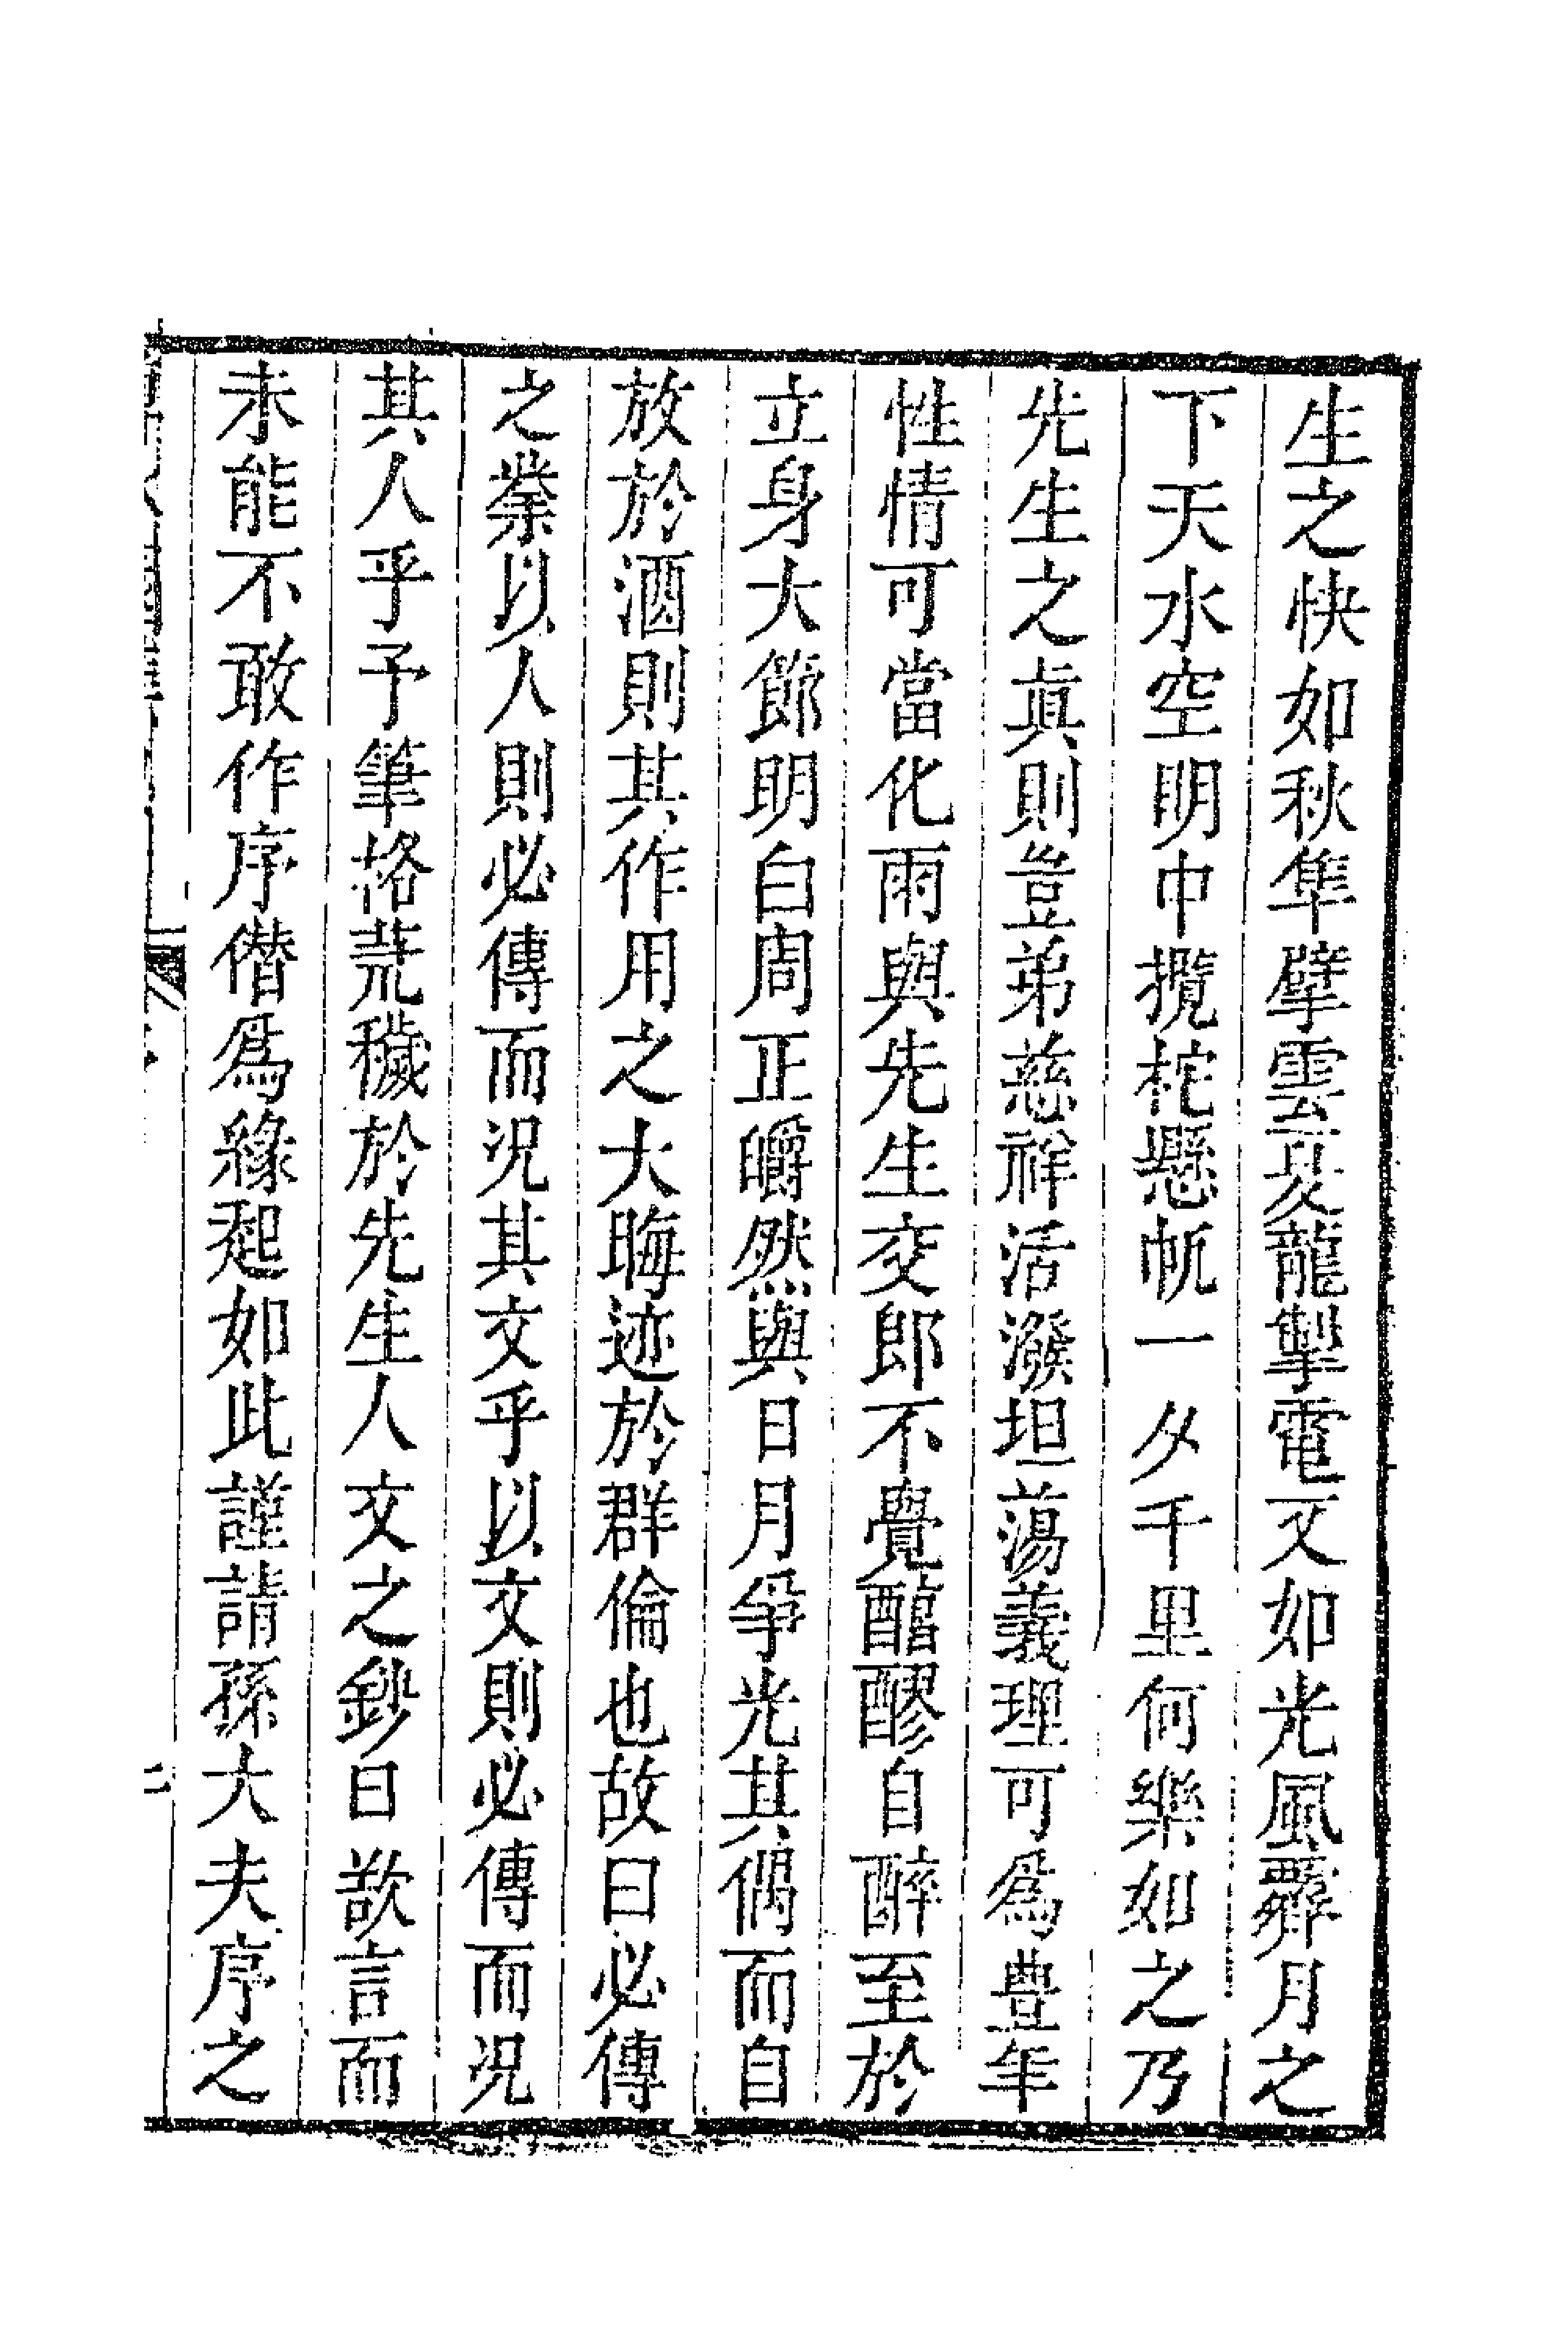 生之快如秋隼擘雲夭龍掣電又如光風霽月之
下天水空明中攬柁懸帆一夕千里何樂如之乃
先生之眞則豈弟慈祥活潑坦蕩義理可爲豊年
性情可當化雨與先生交郎不覺醕醪自醉至於
立身大節明白周正皭然與日月爭光其偶而自
放於酒則其作用之大晦迹於群倫也故曰必傳
之業以人則必傳而況其文乎以文則必傳而况
其人乎予筆格荒穢於先生人文之鈔曰歃言而
未能不敢作序僣爲緣起如此謹請孫大夫序之